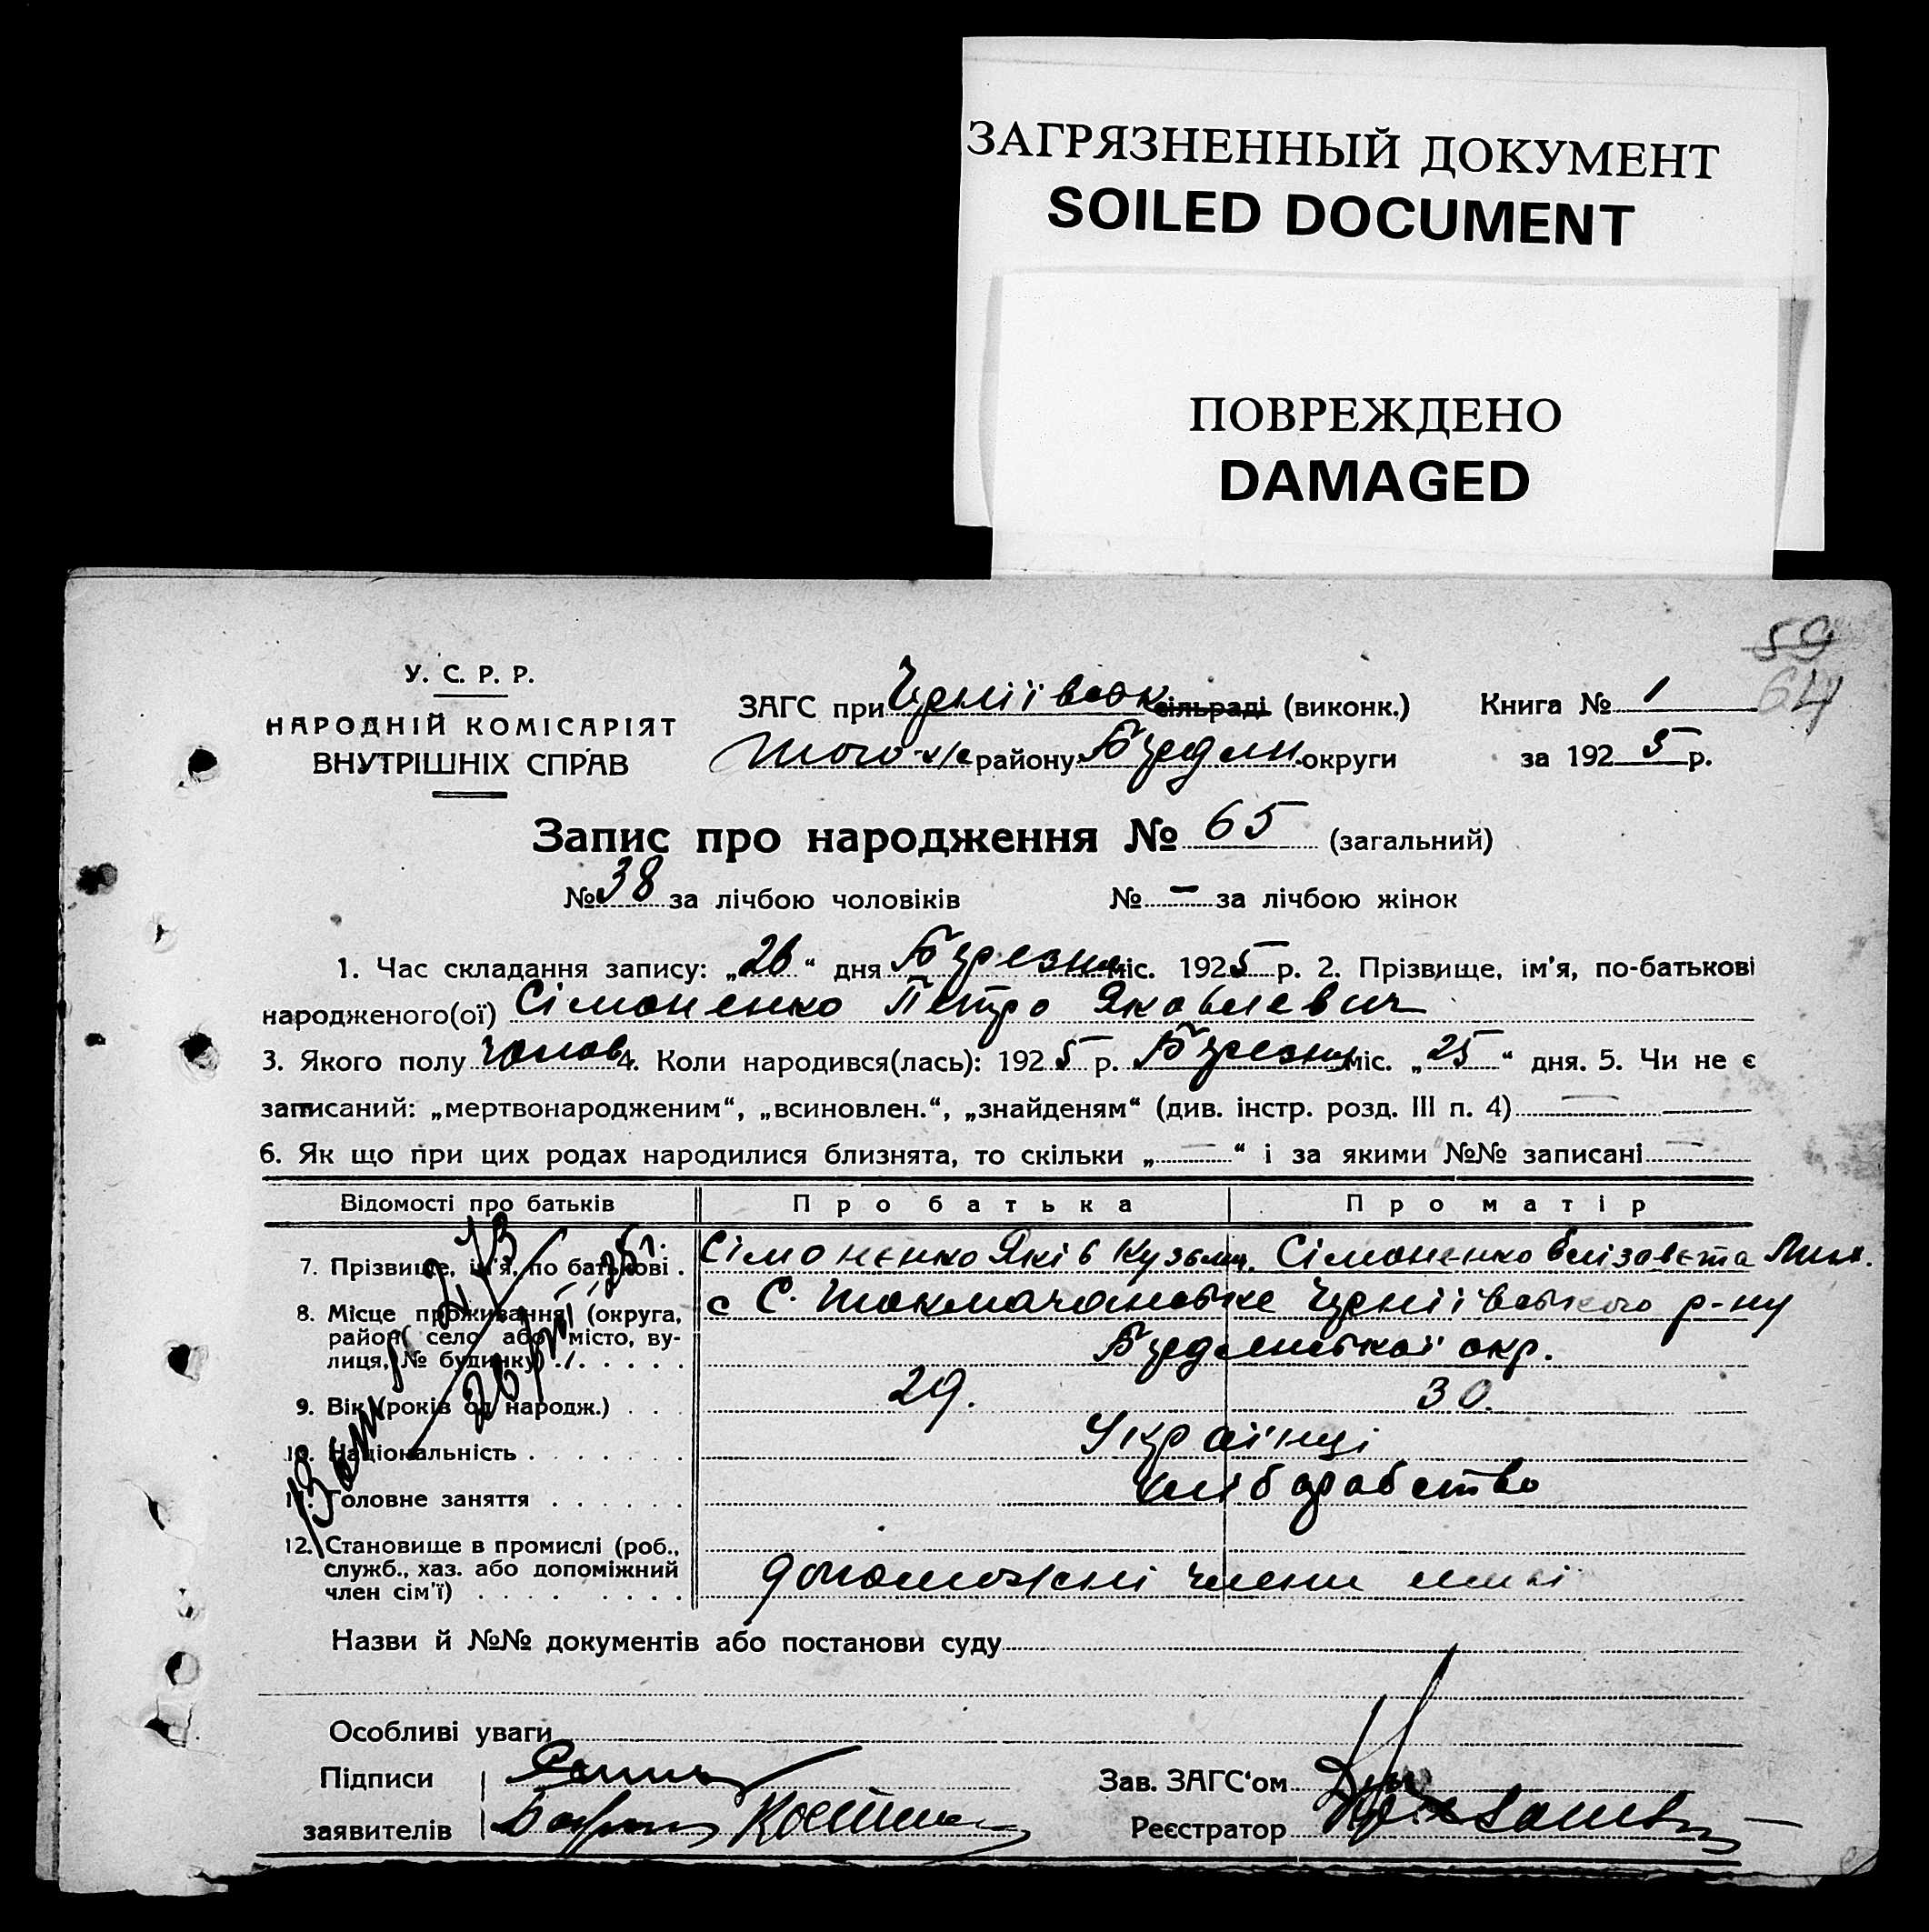 ЗАГРЯЗНЕННЫЙ ДОКУМЕНТ
SOILED DOCUMENT
ПОВРЕЖДЕНО
DAMAGED
59
64
У. С. Р. Р.
НАРОДНІЙ КОМІСАРІЯТ
ВНУТРІШНІХ СПРАВ
ЗАГС при сільраді (виконк.) Книга № 1
того-ж району Бердян. округи за 1925 р.
Запис про народження № 65 (загальний)
№ 38 за лічбою чоловіків № — за лічбою жінок
1. Час складання запису: „26“ дня Березня міс. 1925 р. 2. Прізвище, ім'я, по-батькові
народженого(ої) Сімоненко Петро Яковлевич
3. Якого полу чолов. 4. Коли народився(лась): 1925 р. Березня міс. „25“ дня. 5. Чи не є
записаний: „мертвонародженим“, „всиновлен.“, „знайденям“ (див. інстр. розд. III п. 4) —
6. Як що при цих родах народилися близнята, то скільки „—“ і за якими №№ записані —
Відомості про батьків Про батька Про матір
7. Прізвище, ім'я, по батькові . Сімонєнко Яків Кузьмич. Сімонєнко Єлізавєта
8. Місце проживання (округа, район, село або місто, вулиця, № будинку) . . . . . . с. Токмачанське р-ну
Бердянської окр.
9. Вік (років од народж.) . . . 29. 30.
10. Національність . . . . . . . Українці
11. Головне заняття . . . . . . хліборобство
12. Становище в промислі (роб.,
служб., хаз. або допоміжний
член сім'ї) . . . . . . . . допоможні члени
Назви й №№ документів або постанови суду
Особливі уваги
Підписи Зав. ЗАГС'ом
заявителів Реєстратор